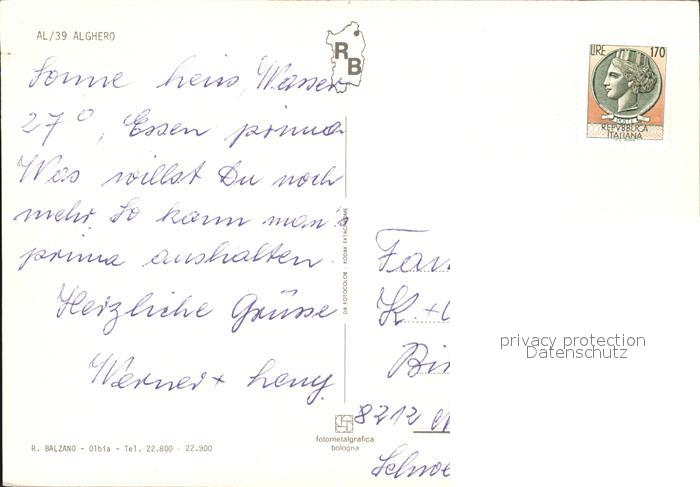 AL/39 ALGHERO
Sonne heiss, Wasser
27°, Essen prima
Was willst Du noch
mehr. So kann man's
prima aushalten.
Herzliche Grüsse
Werner + Leny
R. BALZANO - Olbia - Tel. 22.800 - 22.900
RB
DA FOTOCOLOR KODAK EKTACHROME
fotometalgrafica
bologna
LIRE 170
POSTE
REPVBBLICA
ITALIANA
Fam.
K. +
8212
privacy protection
Datenschutz